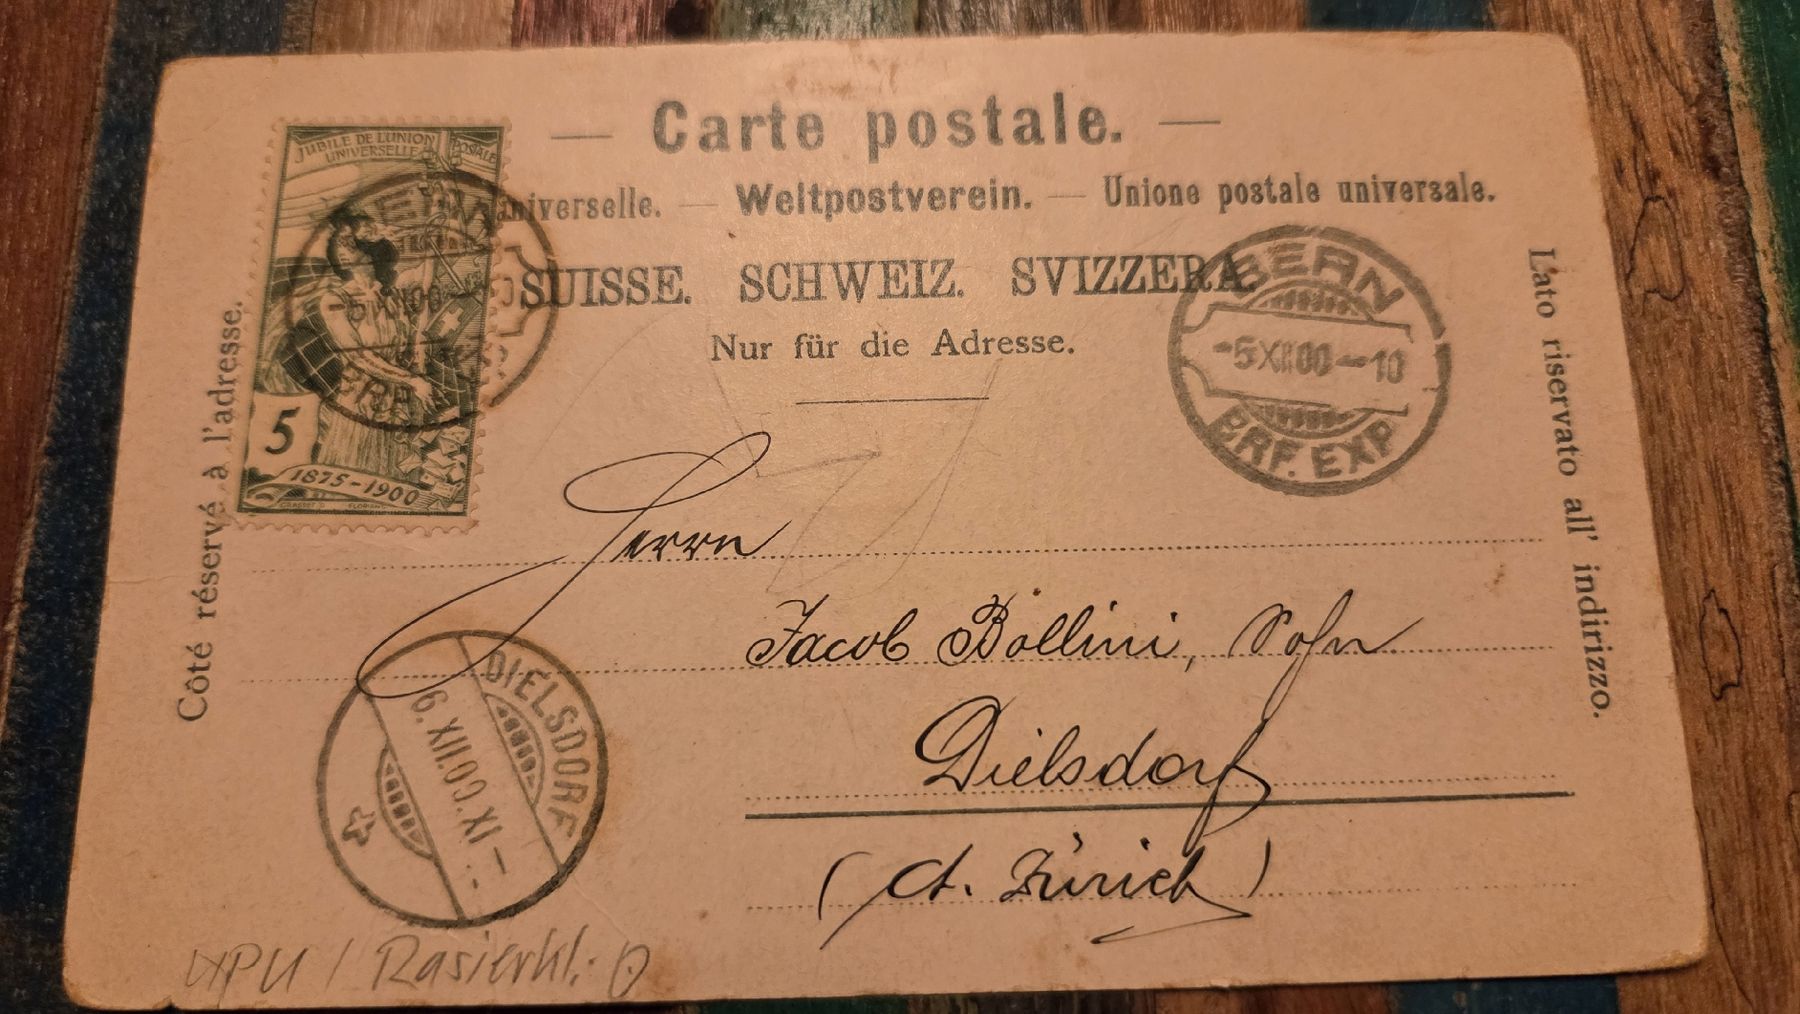 Carte postale.
universelle. — Weltpostverein. — Unione postale universale.
SUISSE. SCHWEIZ. SVIZZERA.
Nur für die Adresse.
JUBILE DE L'UNION POSTALE
UNIVERSELLE
5
1875-1900
GRASSET
FLORIAN
BERN
-5 XII 00-
BERN
-5 XII 00-10
BRF. EXP.
Côté réservé à l'adresse.
Lato riservato all' indirizzo.
Herrn
Jacob Bollini, Sohn
Dielsdorf
(Ct. Zürich)
DIELSDORF
6.XII.00.IX-
UPU / Rasierkl.: